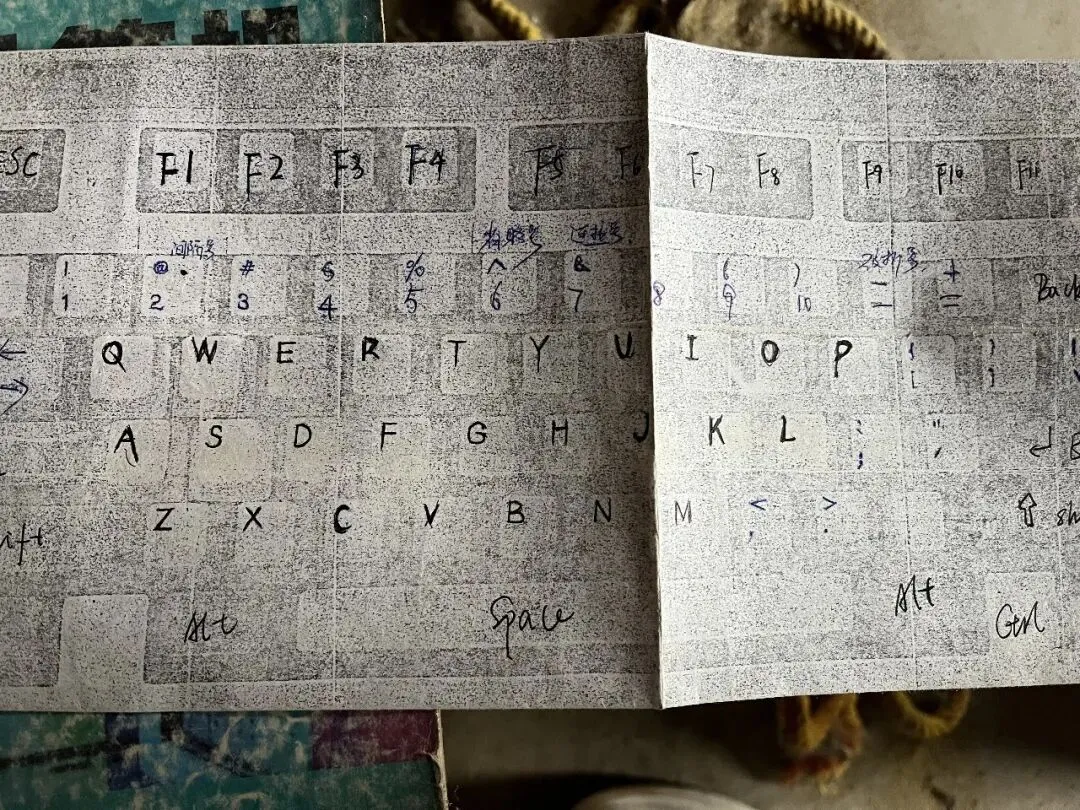 ESC F1 F2 F3 F4 F5 F6 F7 F8 F9 F10 F11
间隔号 省略号 连接号 破折号
! @ · # $ % ^ & ( ) - +
1 2 3 4 5 6 7 8 9 10 — = Back
Q W E R T Y U I O P { } |
[ ] \
A S D F G H J K L : "
; '
Z X C V B N M < >
, .
Shift ⇧ Sh
Alt Space Alt Ctrl